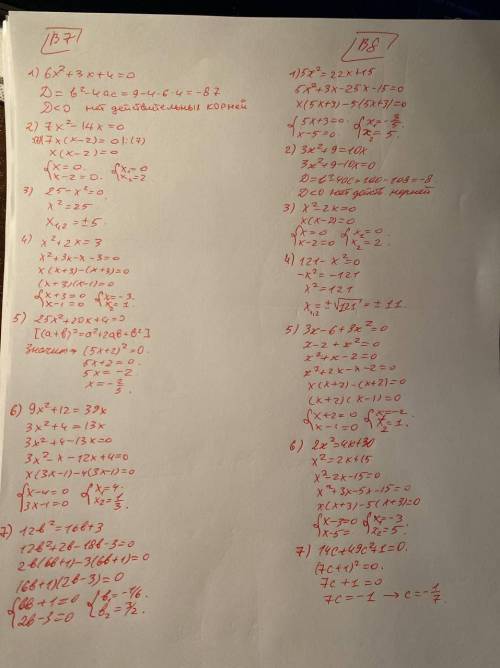 В7
1) 6x²+3x+4=0
D=b²-4ac=9-4·6·4=-87
D<0 нет действительных корней
2) 7x²-14x=0
7x(x-2)=0 |:(7)
x(x-2)=0
{x=0 {x₁=0
{x-2=0. {x₂=2.
3) 25-x²=0.
x²=25
x₁,₂=±5.
4) x²+2x=3
x²+3x-x-3=0
x(x+3)-(x+3)=0
(x+3)(x-1)=0
{x+3=0 {x₁=-3.
{x-1=0 {x₂=1.
5) 25x²+20x+4=0
[(a+b)²=a²+2ab+b²]
Значит→(5x+2)²=0.
5x+2=0.
5x=-2
x=-2/5.
6) 9x²+12=39x
3x²+4=13x
3x²+4-13x=0
3x²-x-12x+4=0
x(3x-1)-4(3x-1)=0
{x-4=0 {x₁=4.
{3x-1=0 {x₂=1/3.
7) 12b²=16b+3
12b²+2b-18b-3=0
2b(6b+1)-3(6b+1)=0
(6b+1)(2b-3)=0
{6b+1=0 {b₁=-1/6.
{2b-3=0 {b₂=3/2.
В8
1) 5x²=22x+15
5x²+3x-25x-15=0
x(5x+3)-5(5x+3)=0
{5x+3=0 {x₁=-3/5.
{x-5=0. {x₂=5.
2) 3x²+9=10x
3x²+9-10x=0
D=b²-4ac=100-108=-8
D<0 нет действ корней
3) x²-2x=0
x(x-2)=0
{x=0 {x₁=0.
{x-2=0 {x₂=2.
4) 121-x²=0
-x²=-121
x²=121
x₁,₂=±√121=±11.
5) 3x-6+3x²=0
x-2+x²=0
x²+x-2=0
x²+2x-x-2=0
x(x+2)-(x+2)=0
(x+2)(x-1)=0
{x+2=0 {x₁=-2.
{x-1=0 {x₂=1.
6) 2x²=4x+30
x²=2x+15
x²-2x-15=0
x²+3x-5x-15=0
x(x+3)-5(x+3)=0
{x-3=0 {x₁=-3
{x-5= {x₂=5.
7) 14c+49c²+1=0.
(7c+1)²=0.
7c+1=0
7c=-1 → c=-1/7.